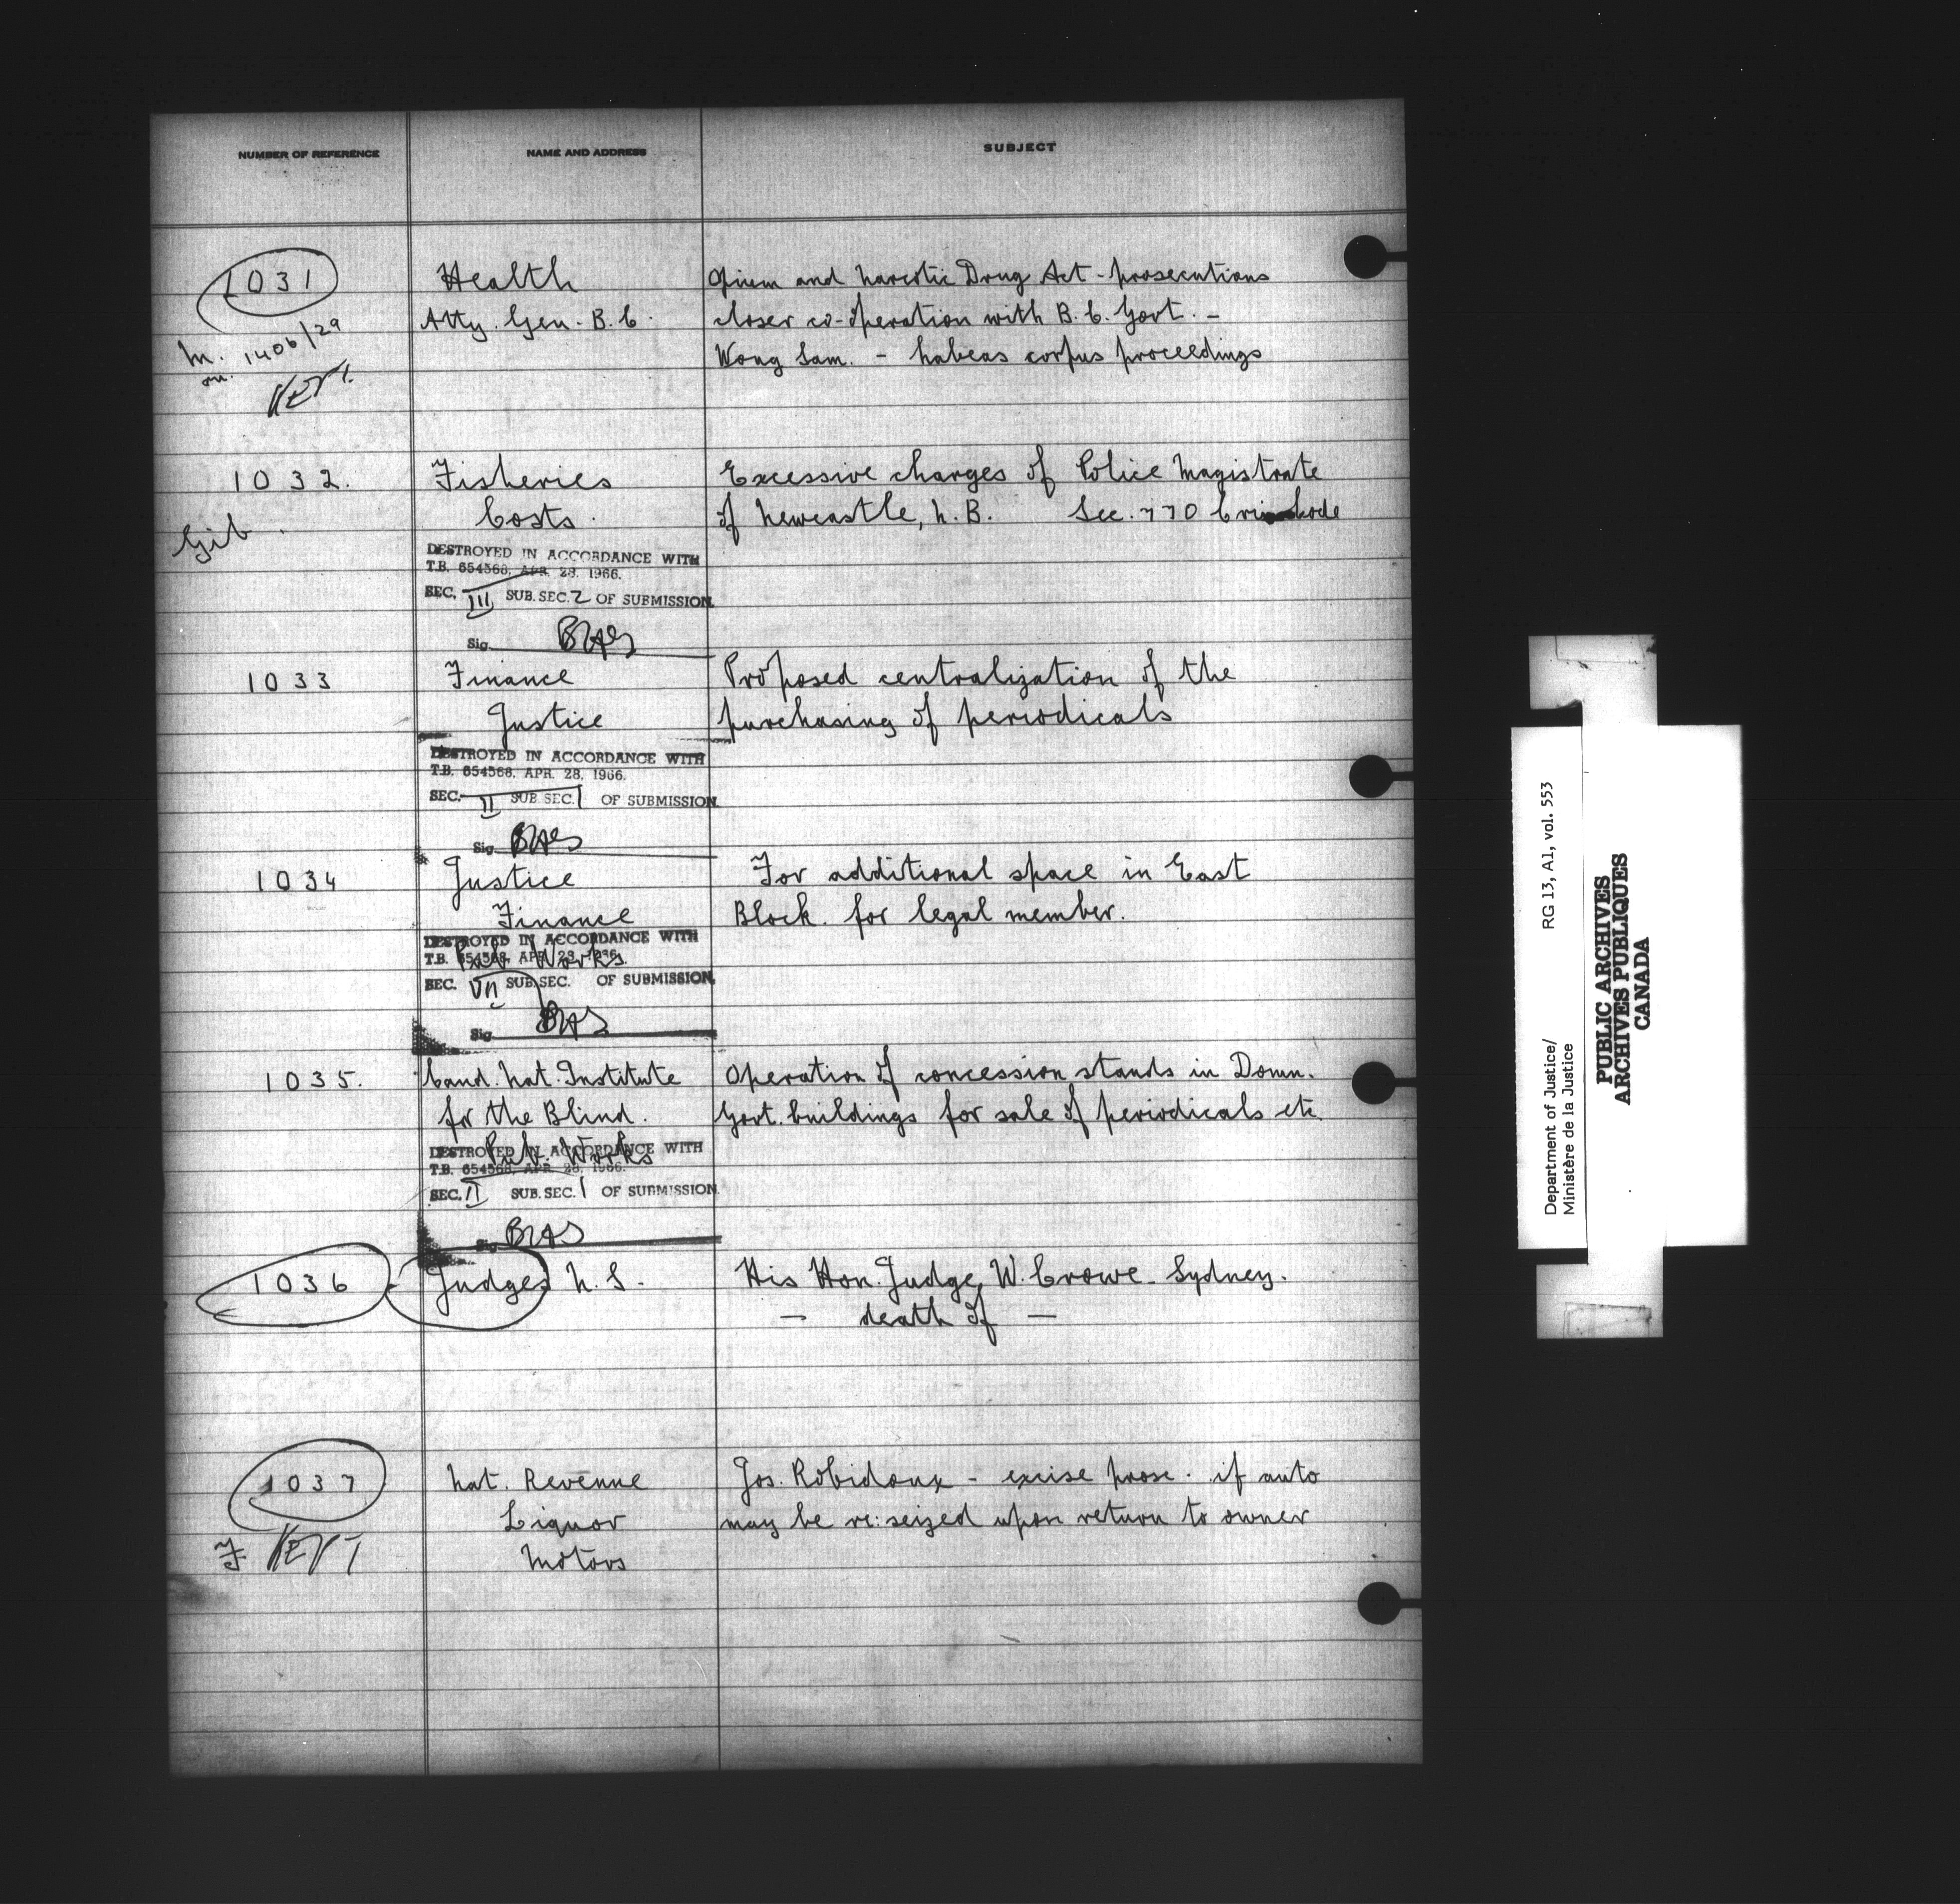 NUMBER OF REFERENCE
NAME AND ADDRESS
SUBJECT
1031
Health
Opium and Narcotic Drug Act - prosecutions
Atty. Gen. B.C.
closer co-operation with B.C. Govt. -
M. 1406/29
Wong Sam. - habeas corpus proceedings
KEPT.
1032.
Fisheries
Excessive charges of Police Magistrate
Costs.
of Newcastle, N.B. Sec. 770 Crim Code
DESTROYED IN ACCORDANCE WITH
T.B. 654568, APR. 28, 1966.
SEC. III SUB. SEC. 2 OF SUBMISSION.
Sig.
1033
Finance
Proposed centralization of the
Justice
purchasing of periodicals
DESTROYED IN ACCORDANCE WITH
T.B. 654568, APR. 28, 1966.
SEC. II SUB SEC. 1 OF SUBMISSION.
Sig.
1034
Justice
For additional space in East
Finance
Block. for legal member.
Pub. Works
DESTROYED IN ACCORDANCE WITH
T.B. 654568, APR. 28, 1966.
SEC. VII SUB SEC. OF SUBMISSION.
Sig.
1035.
Cand. Nat. Institute
Operation of concession stands in Domn.
for the Blind.
Govt. buildings for sale of periodicals etc
Pub. Works
DESTROYED IN ACCORDANCE WITH
T.B. 654568, APR. 28, 1966.
SEC. II SUB. SEC. 1 OF SUBMISSION.
Sig.
1036
Judges N.S.
His Hon. Judge W. Crowe - Sydney.
- death of -
1037
Nat. Revenue
Jos. Robidoux - excise prose. if auto
Liquor
may be re:seized upon return to owner
F KEPT
Motors
Department of Justice/
Ministère de la Justice
RG 13, A1, vol. 553
PUBLIC ARCHIVES
ARCHIVES PUBLIQUES
CANADA